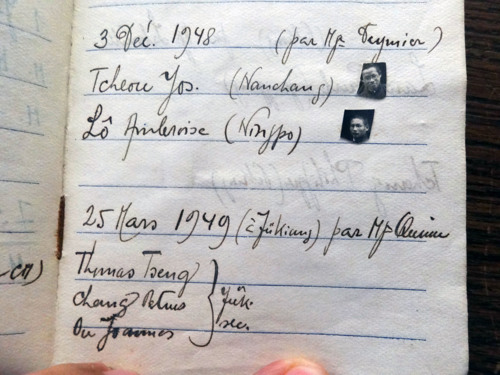 3 Déc. 1948 (par Mgr Deymier)
Tcheou Jos. (Nanchang)
Lô Ambroise (Ningpo)
25 Mars 1949 (à Jûkiang) par Mgr Quinn
Thomas Tseng
Chang Petrus
Ou Joannes
Jûk.